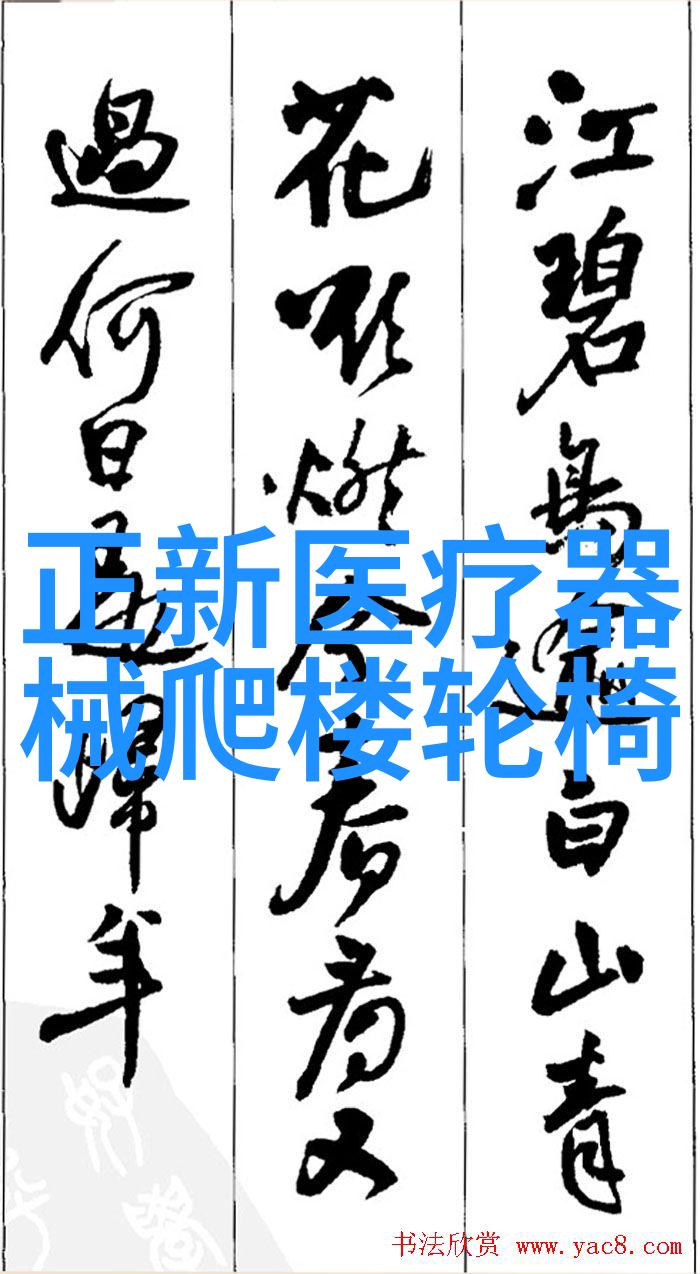 江碧鳥逾白山青
花欲燃今春看又
過何日是歸年
正新医疗器
械爬楼轮椅
书法欣赏 www.yac8.com